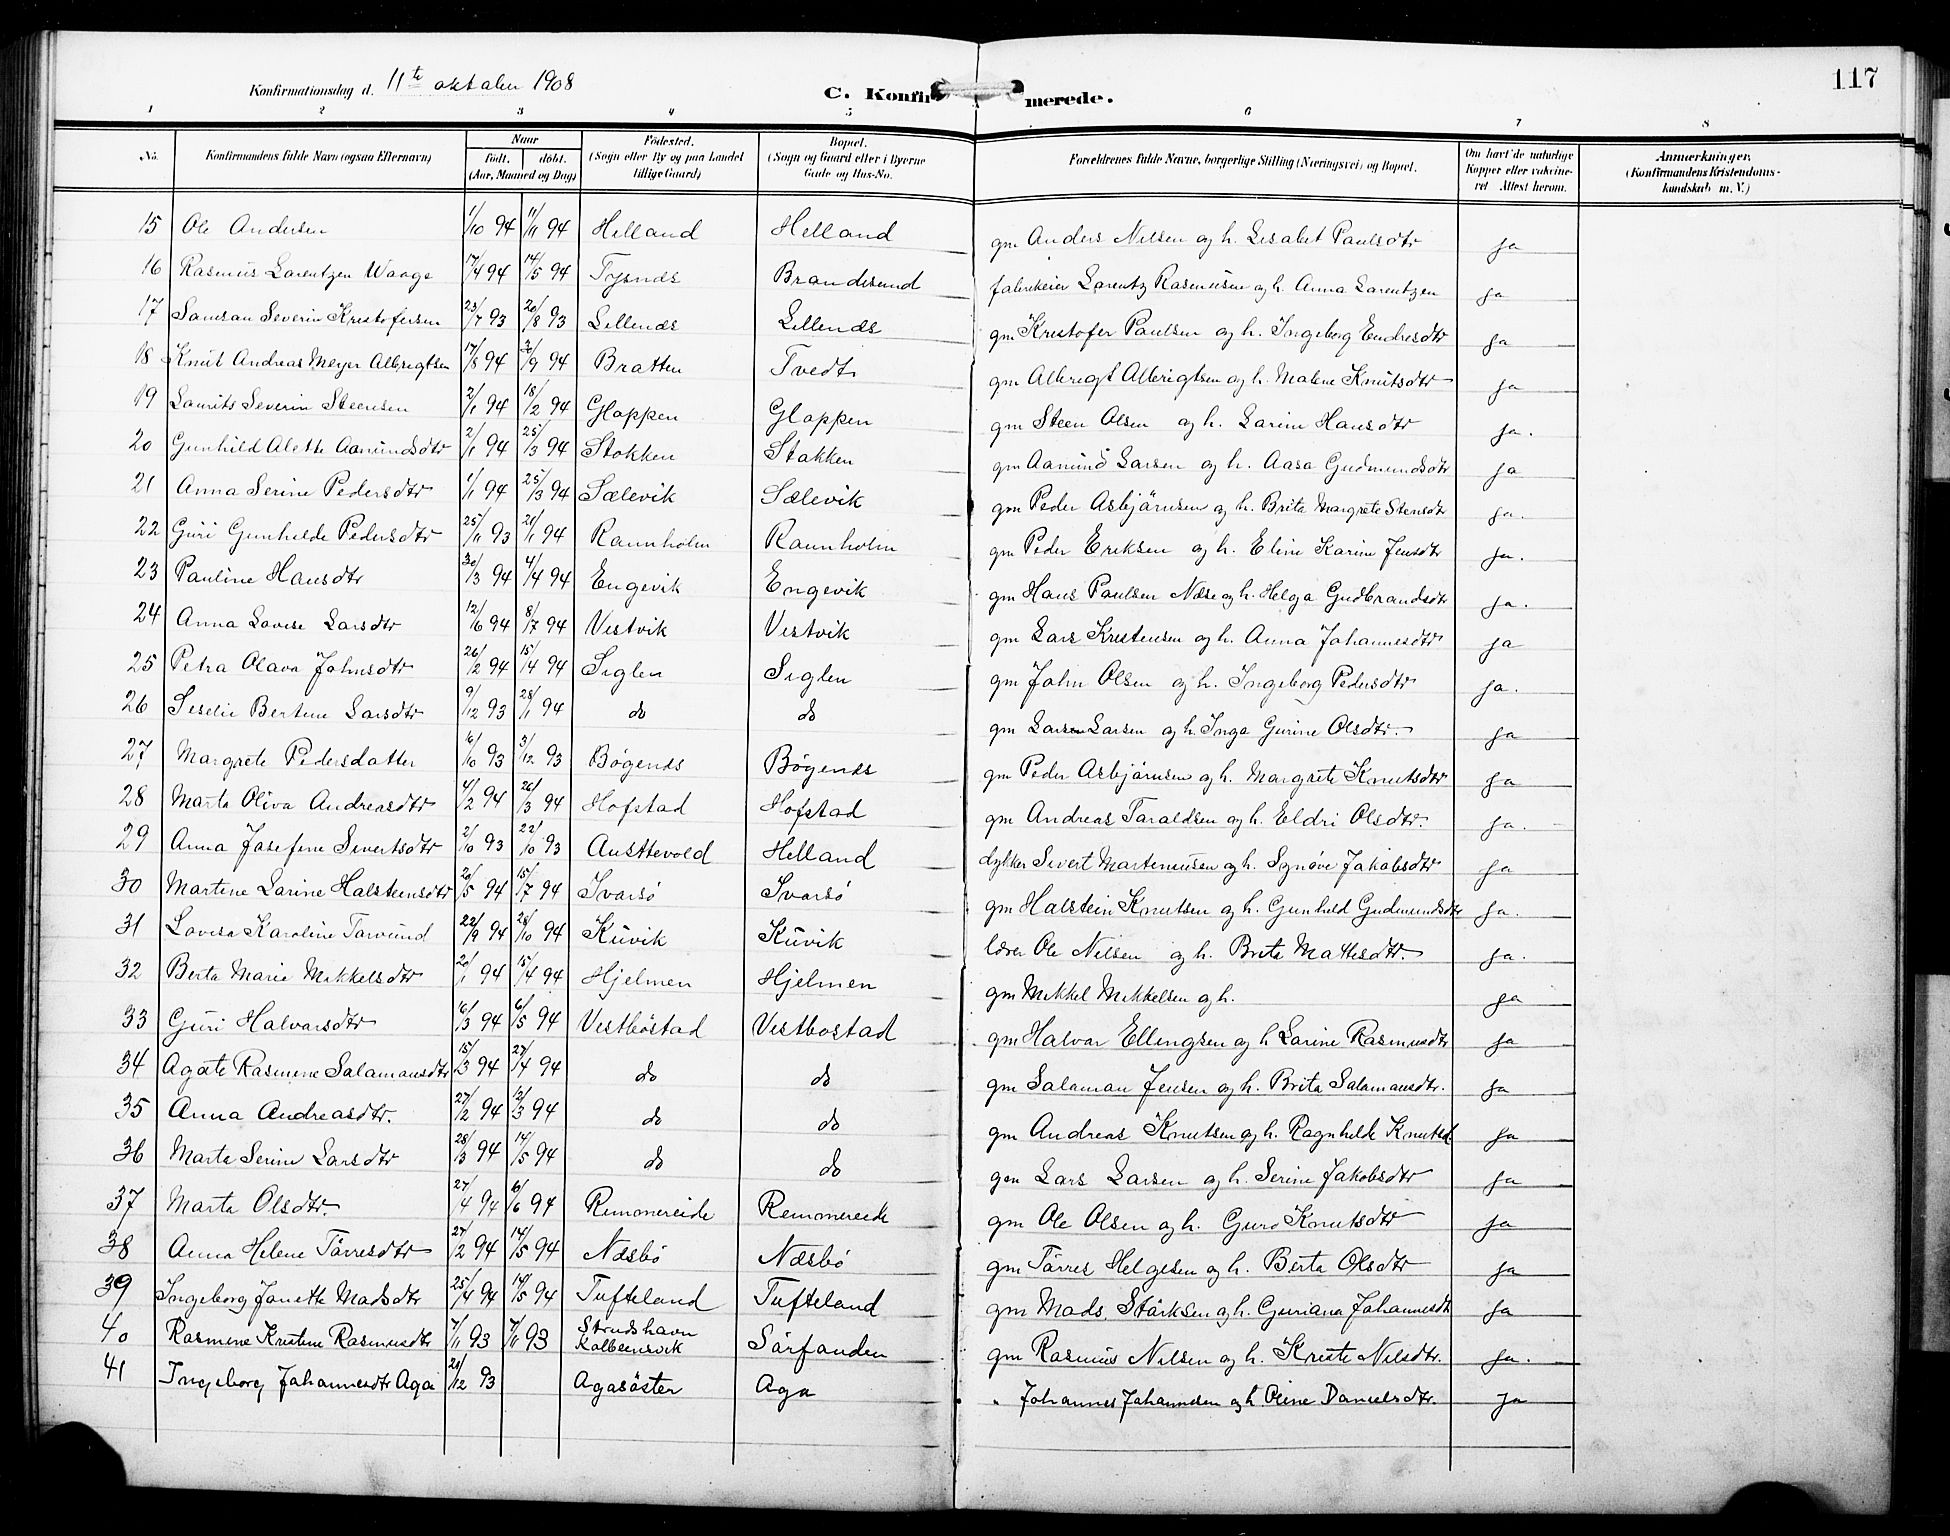 Konfirmationsdag d. 11te oktober 1908
C. Konfirmerede.
117
1 2 3 4 5 6 7 8
No. Konfirmandens fulde Navn (ogsaa Efternavn) Naar født. døbt. (Aar, Maaned og Dag) Fødested. (Sogn eller By og paa Landet tillige Gaard) Bopæl. (Sogn og Gaard eller i Byerne Gade og Hus-No. Forældrenes fulde Navne, borgerlige Stilling (Næringsvei) og Bopæl. Om havt de naturlige Kopper eller vakcineret Attest herom. Anmærkninger. (Konfirmandens Kristendomskundskab m. V.)
15 Ole Andersen 1/10 94 11/11 94 Helland Helland gm Anders Nilsen og h. Lisabet Paulsdtr ja
16 Rasmus Larentzen Waage 17/4 94 14/5 94 Tysnes Brandesund fabrikeier Larentz Rasmussen og h. Anna Larentzen ja
17 Samson Severin Kristofersen 23/7 93 20/8 93 Lillenes Lillenes gm Kristofer Paulsen og h. Ingeborg Endresdtr ja
18 Knut Andreas Meyer Albrigtsen 17/8 94 30/9 94 Bratten Tvedt gm Albrigt Albrigtsen og h. Malene Knutsdtr ja
19 Laurits Severin Steensen 2/1 94 18/2 94 Gloppen Gloppen gm Steen Olsen og h. Larine Hansdtr ja.
20 Gunhild Alette Aamundsdtr 2/1 94 25/3 94 Stokken Stokken gm Aamund Larsen og h. Aasa Gudmundsdtr ja
21 Anna Serine Pedersdtr 1/1 94 25/3 94 Sælevik Sælevik gm Peder Asbjørnsen og h. Brita Margrete Stensdtr ja.
22 Guri Gunhilde Pedersdtr 25/11 93 21/1 94 Rannholm Rannholm gm Peder Eriksen og h. Eline Karine Jensdtr ja.
23 Pauline Hansdtr 30/3 94 4/4 94 Engevik Engevik gm Hans Paulsen Næse og h. Helga Gudbrandsdtr ja.
24 Anna Lovise Larsdtr 12/6 94 8/7 94 Vestvik Vestvik gm Lars Kristensen og h. Anna Johannesdtr ja
25 Petra Olava Johnsdtr 26/2 94 15/4 94 Siglen Siglen gm John Olsen og h. Ingeborg Pedersdtr ja.
26 Seselie Bertine Larsdtr 9/12 93 28/1 94 do do gm Larsen Larsen og h. Inga Gurine Olsdtr. ja
27 Margrete Pedersdatter 16/10 93 3/12 93 Bøgenes Bøgenes gm Peder Asbjørnsen og h. Margrete Knutsdtr ja
28 Marta Oliva Andreasdtr 4/2 94 26/3 94 Hofstad Hofstad gm Andreas Taraldsen og h. Eldri Olsdtr. ja.
29 Anna Josefine Sivertsdtr 2/10 93 22/10 93 Austtevold Helland dykker Sivert Martinussen og h. Synøve Jakobsdtr ja
30 Martine Larine Halsteensdtr 20/5 94 15/7 94 Ivarsø Ivarsø gm Halstein Knutsen og h. Gunhild Gudmundsdtr ja.
31 Lovisa Karoline Tarvund 22/9 94 28/10 94 Kuvik Kuvik lærer Ole Nilsen og h. Brita Mattisdtr. ja.
32 Berta Marie Mikkelsdtr 20/1 94 15/4 94 Hjelmen Hjelmen gm Mikkel Mikkelsen og h. ja
33 Guri Halvarsdtr 16/3 94 6/5 94 Vestbøstad Vestbostad gm Halvar Ellingsen og h Larine Rasmusdtr ja
34 Agate Rasmine Salamonsdtr 15/3 94 27/4 94 do do gm Salamon Jensen og h. Brita Salamonsdtr. ja
35 Anna Andreasdtr. 27/2 94 12/3 94 do do gm Andreas Knutsen og h. Ragnhilde Knutsd ja
36 Marta Serine Larsdtr 28/3 94 14/5 94 do do gm Lars Larsen og h. Serine Jakobsdtr ja
37 Marta Olsdtr. 27/4 94 6/6 94 Remmereide Remmereide gm Ole Olsen og h. Guro Knutsdtr ja
38 Anna Helene Tørresdtr 27/2 94 14/5 94 Næsbø Næsbø gm Tørres Helgesen og h. Berta Olsdtr ja
39 Ingeborg Janette Madsdtr 25/4 94 14/5 94 Tufteland Tufteland gm Mads. Størksen og h. Guriana Johannesdt ja
40 Rasmine Kristine Rasmusdtr 7/11 93 7/11 93 Strudshavn Kolbeensvik Sørfonden gm Rasmus Nilsen og h. Kriste Nilsdtr. ja.
41 Ingeborg Johannesdtr Aga 20/12 93 Agasøster Aga " Johannes Johannesen og h Oline Danielsdtr. ja